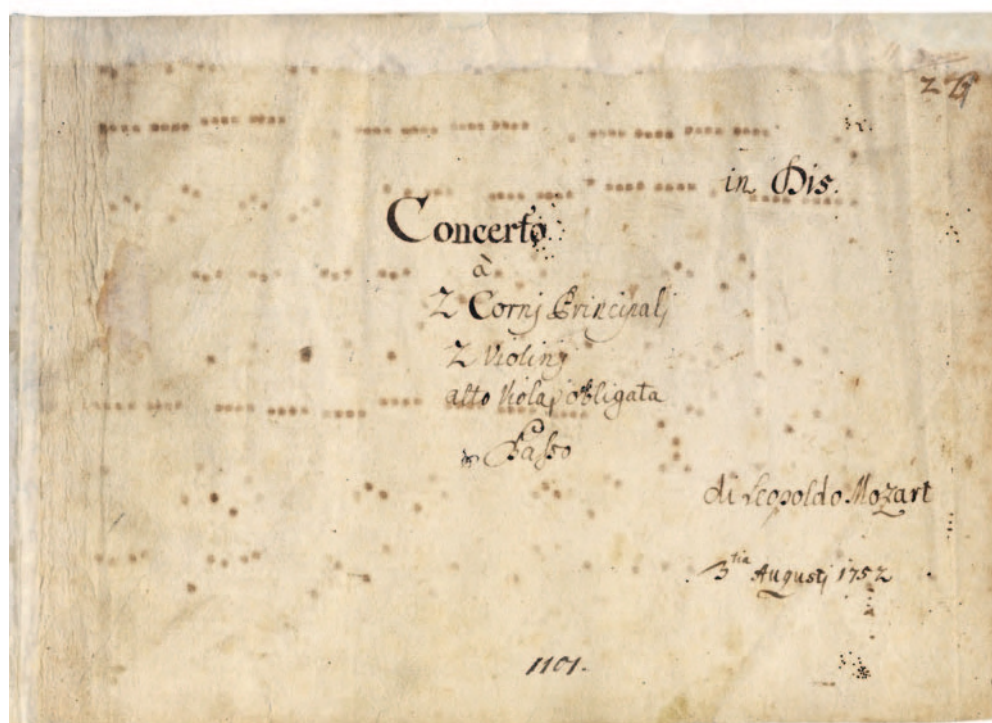 in Dis.
Concerto
à
2 Cornj Principalj
2 Violinj
alto Viola obligata
Basso
di Leopoldo Mozart
3tia Augustj 1752
1101.